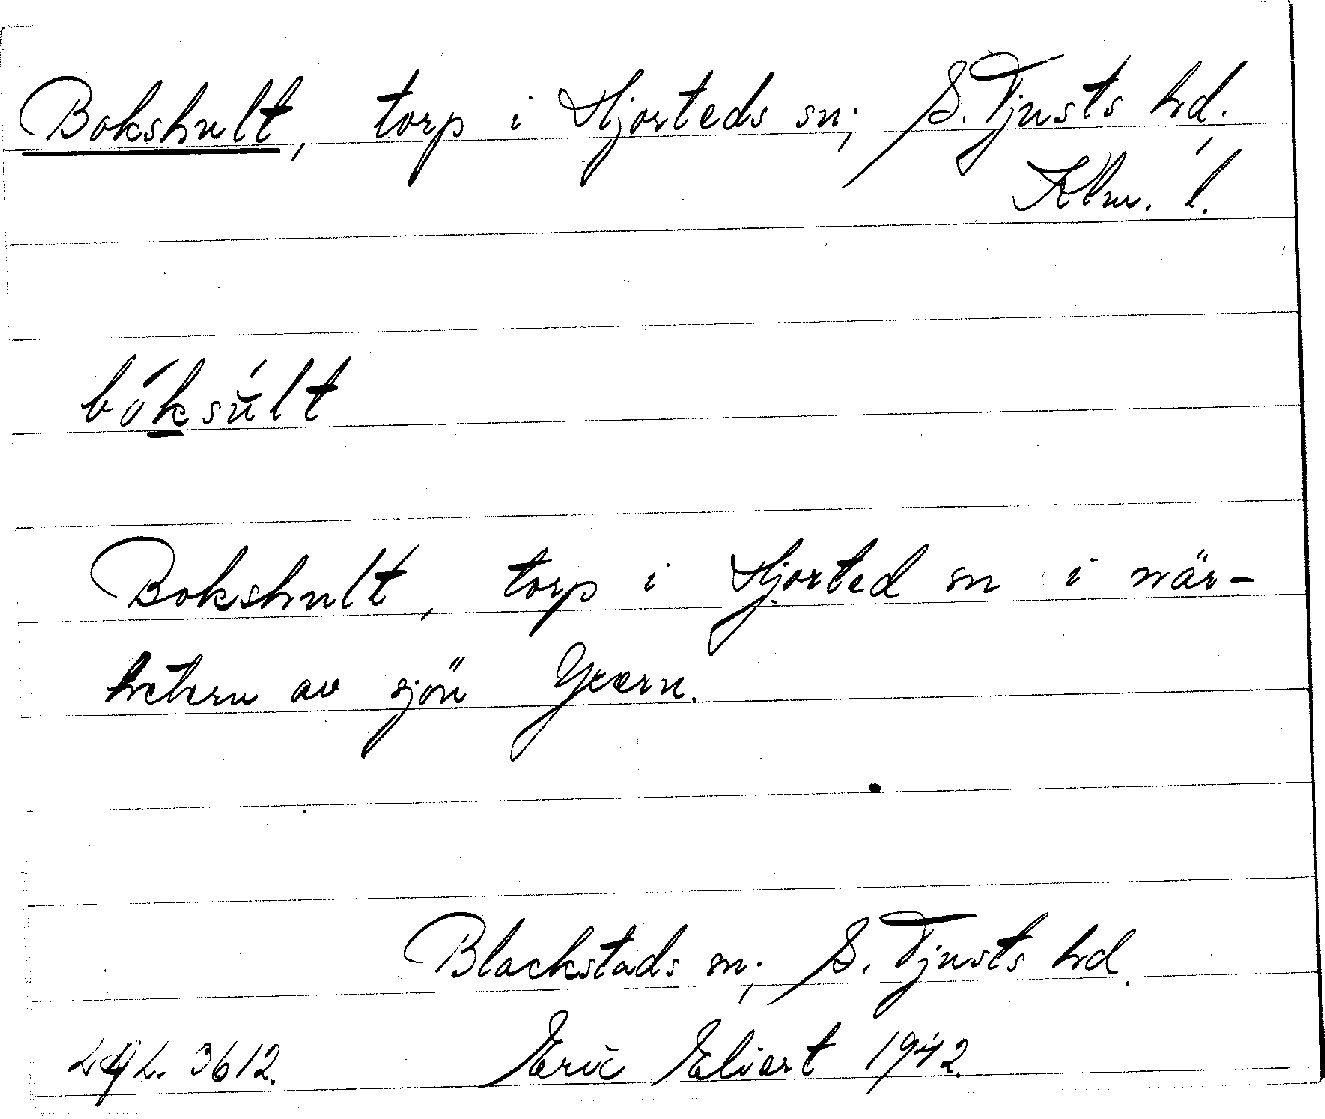 Bokshult, torp i Hjorteds sn; S. Tjusts hd.
Klm. l.
bóksúlt
Bokshult, torp i Hjorted sn i när-
heten av sjön Yxern.
Blackstads sn; S. Tjusts hd.
3612. Eric Elvert 1942.